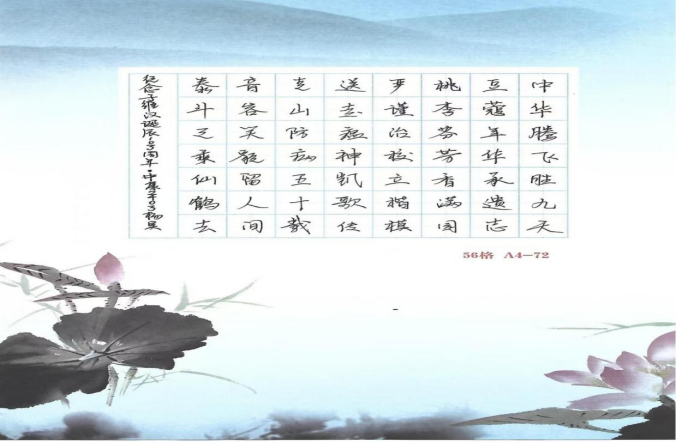 纪念于维汉诞辰周年·中
泰斗已乘仙鹤去
音容笑貌留人间
克山防病五十载
送走瘟神凯歌传
严谨治校立楷模
桃李芬芳香满园
豆蔻年华承遗志
中华腾飞胜九天
56格 A4-72